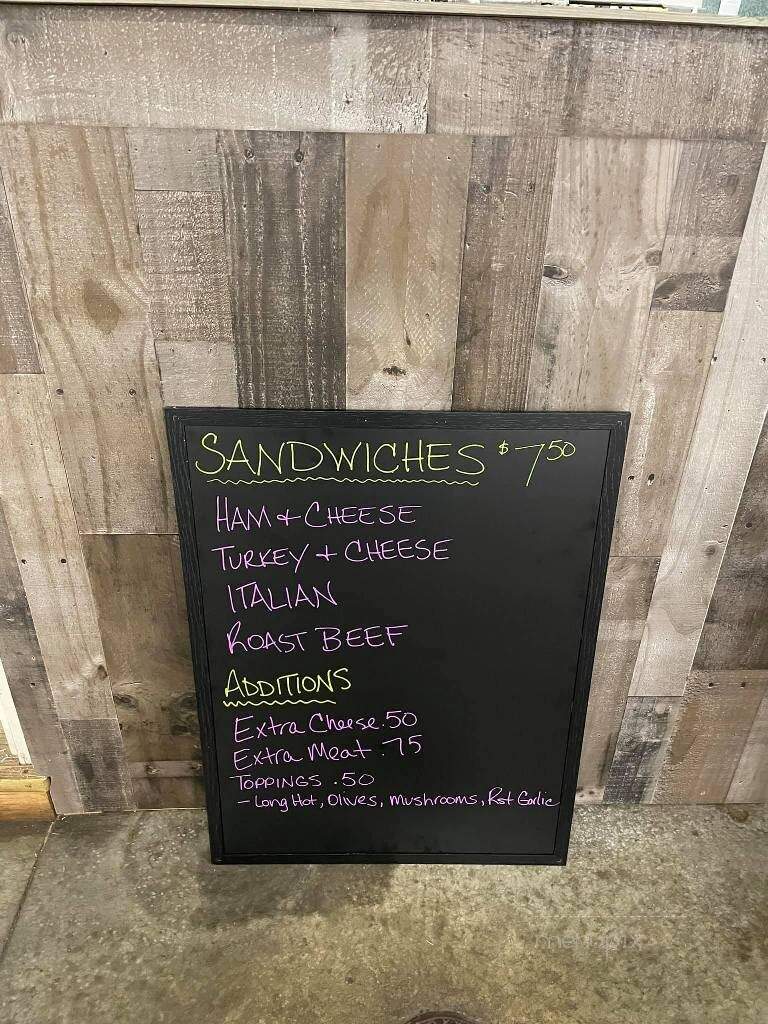 SANDWICHES $7.50
HAM & CHEESE
TURKEY + CHEESE
ITALIAN
ROAST BEEF
ADDITIONS
Extra Cheese .50
Extra Meat .75
TOPPINGS .50
- Long Hot, Olives, Mushrooms, Rst Garlic
menupix